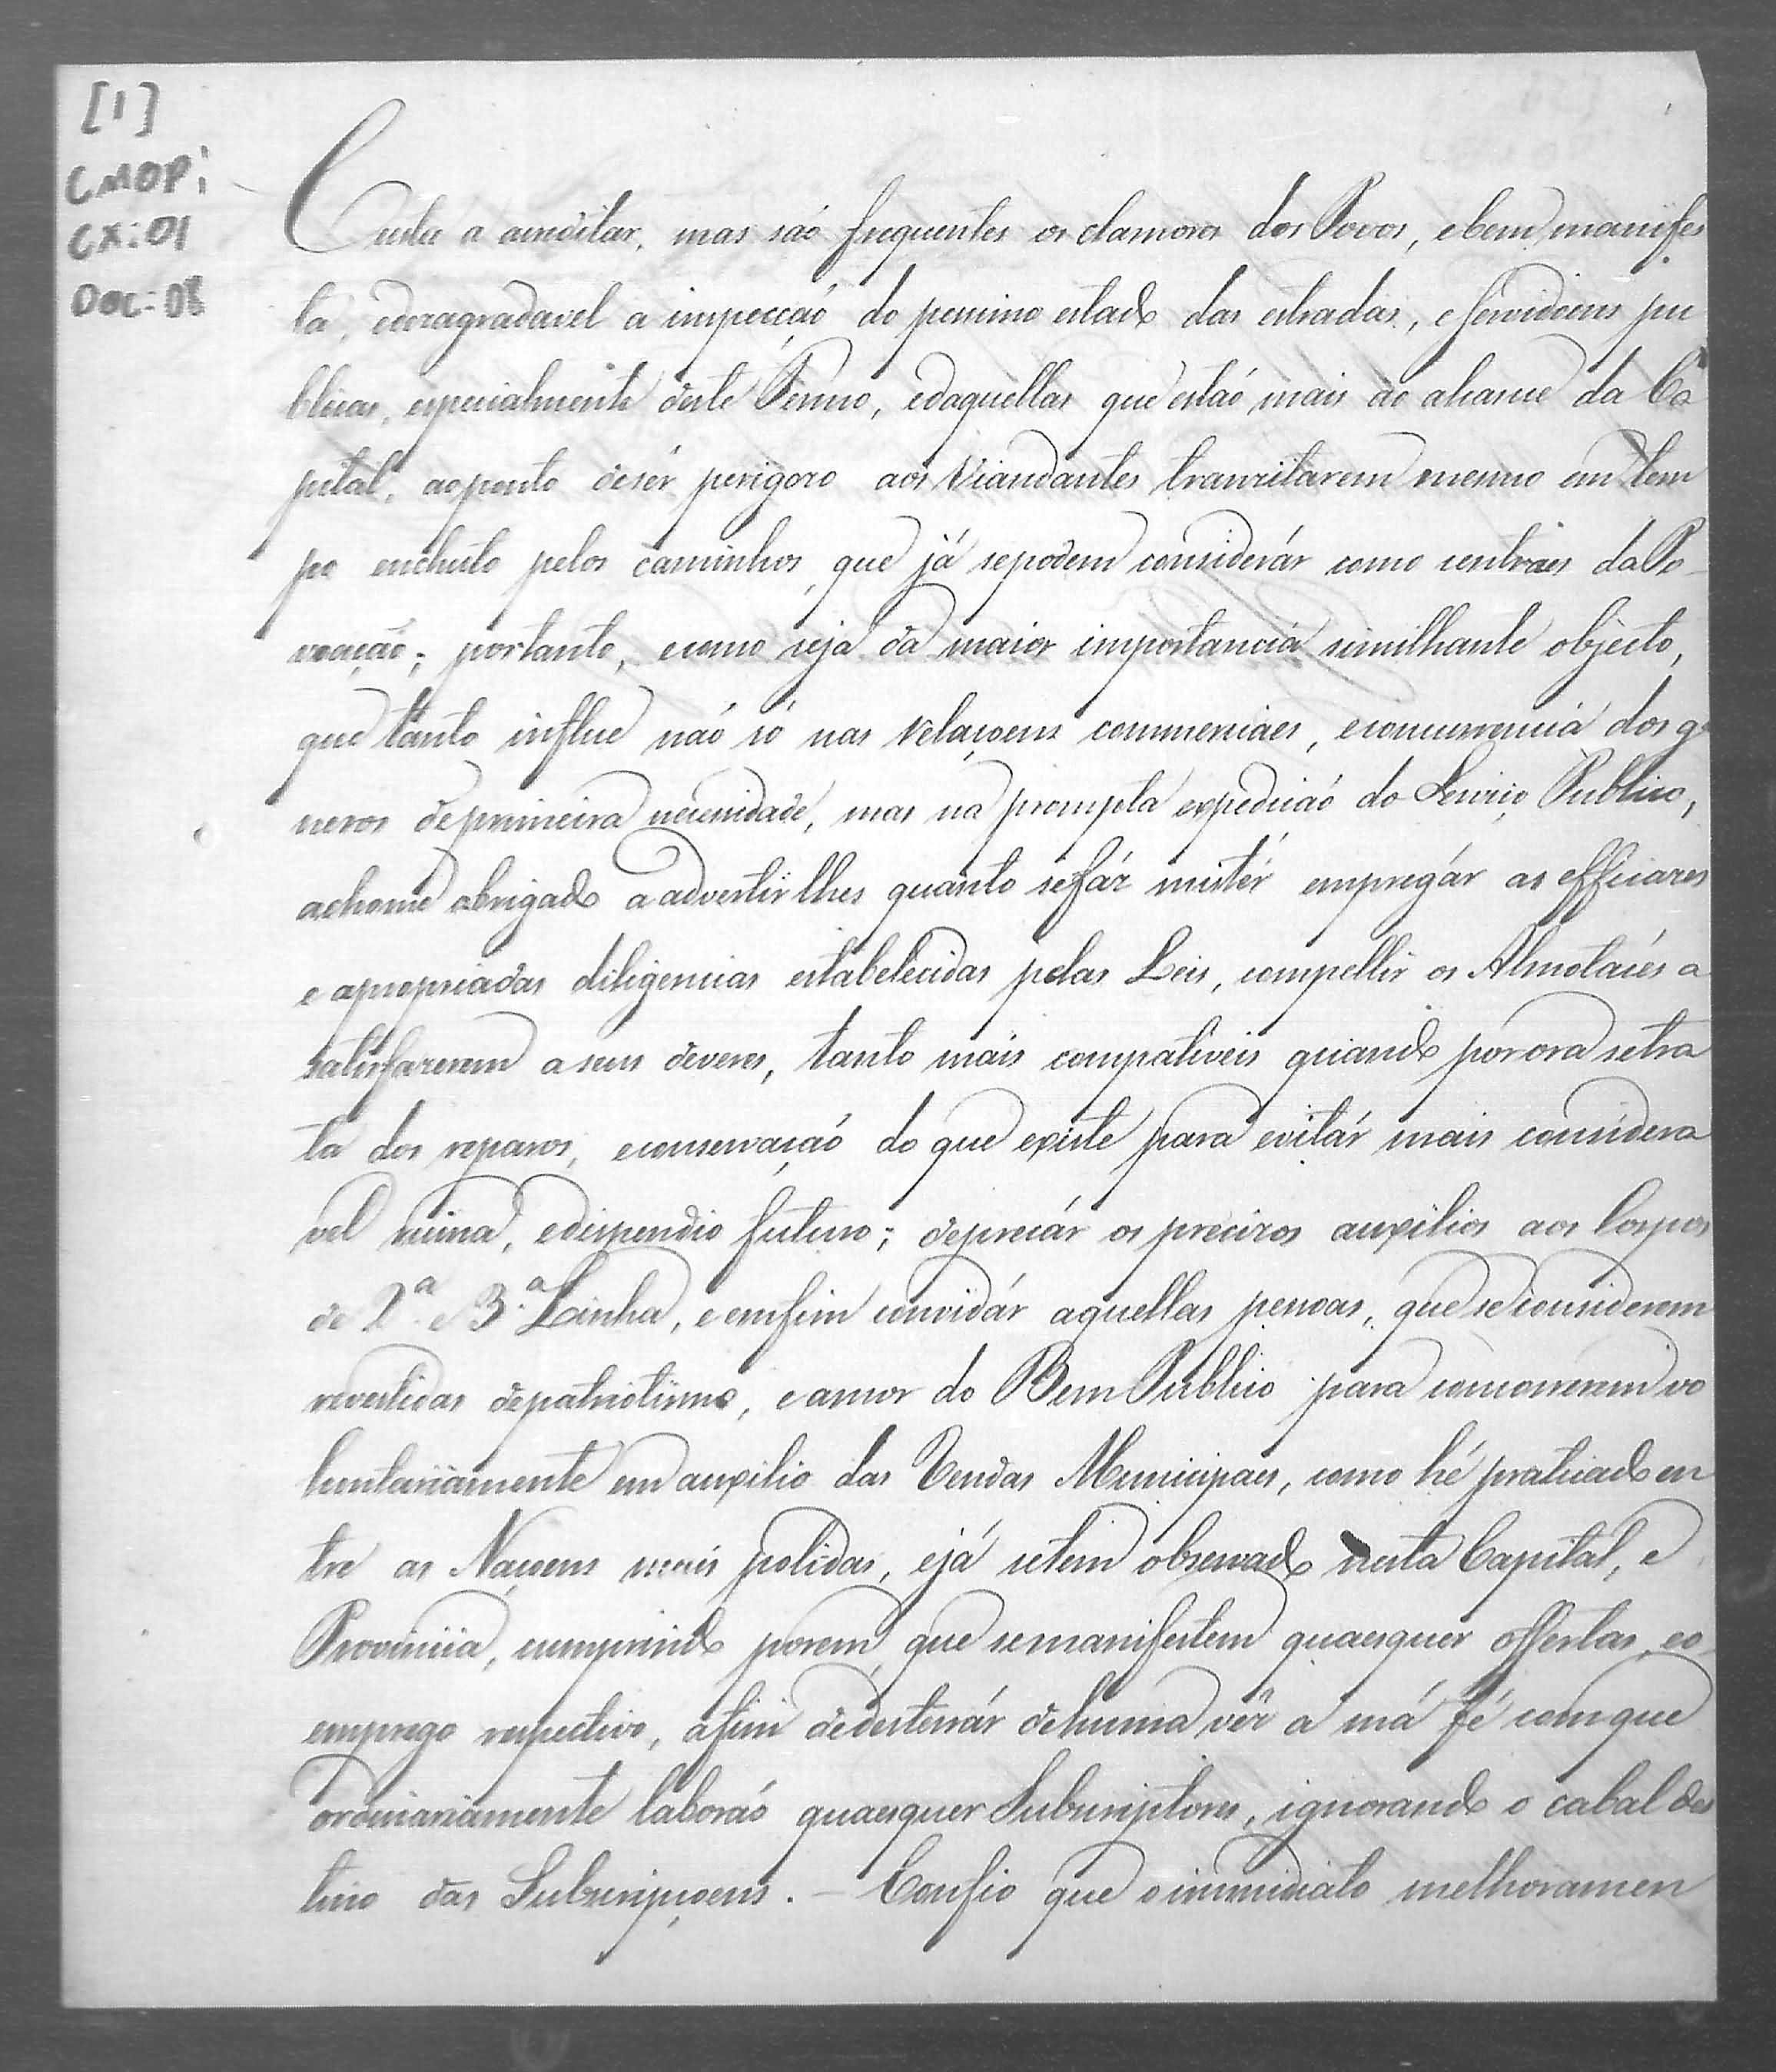 [1]
CMOP:
CX:01
DOC:08
Custa a acreditar, mas saó frequentes os clamores dos Povos, ebem manifes
ta, edezagradavel a inspecçaó do pessimo estado das estradas, eservidoens pu
blicas, especialmente deste Termo, edaquellas que estaó mais ao alcance da Ca
pital, aoponto desêr perigozo aos Viandantes tranzitarem mesmo em tem
po enchuto pelos caminhos, que já sepodem considerár como centraes daPo
voação; portanto, ecomo seja da maior importancia similhante objecto,
que tanto influe naó só nas relaçoens commerciaes, econcurrencia dos ge
neros deprimeira necessidade, mas na prompta expediçaó do Serviço Publico,
achome obrigado aadvertirlhes quanto sefáz mistér empregár as efficazes
e apropriadas diligencias estabelecidas pelas Leis, compellir os Almotacés a
satisfazerem aseus deveres, tanto mais compativeis quando porora setra
ta dos reparos, econservaçaó do que existe para evitár mais considera
vel ruina, edispendio futuro; deprecár os precizos auxilios aos Corpos
de 2ª e 3ª Linha, eemfim convidár aquellas pessoas, que seconsiderem
revestidas depatriotismo, eamor do Bem Publico para concorrerem vo
luntariamente em auxilio das Rendas Municipaes, como hé praticado en
tre as Naçoens mais polidas, ejá setem observado nesta Capital, e
Provincia, cumprindo porem, que semanifestem quaesquer offertas, eo
emprego respectivo, afim dedesterrár dehuma vêz a má fé comque
ordinariamente laboraó quaesquer Subscriptores, ignorando o cabal des
tino das Subscripçoens. – Confio que oimmediato melhoramen